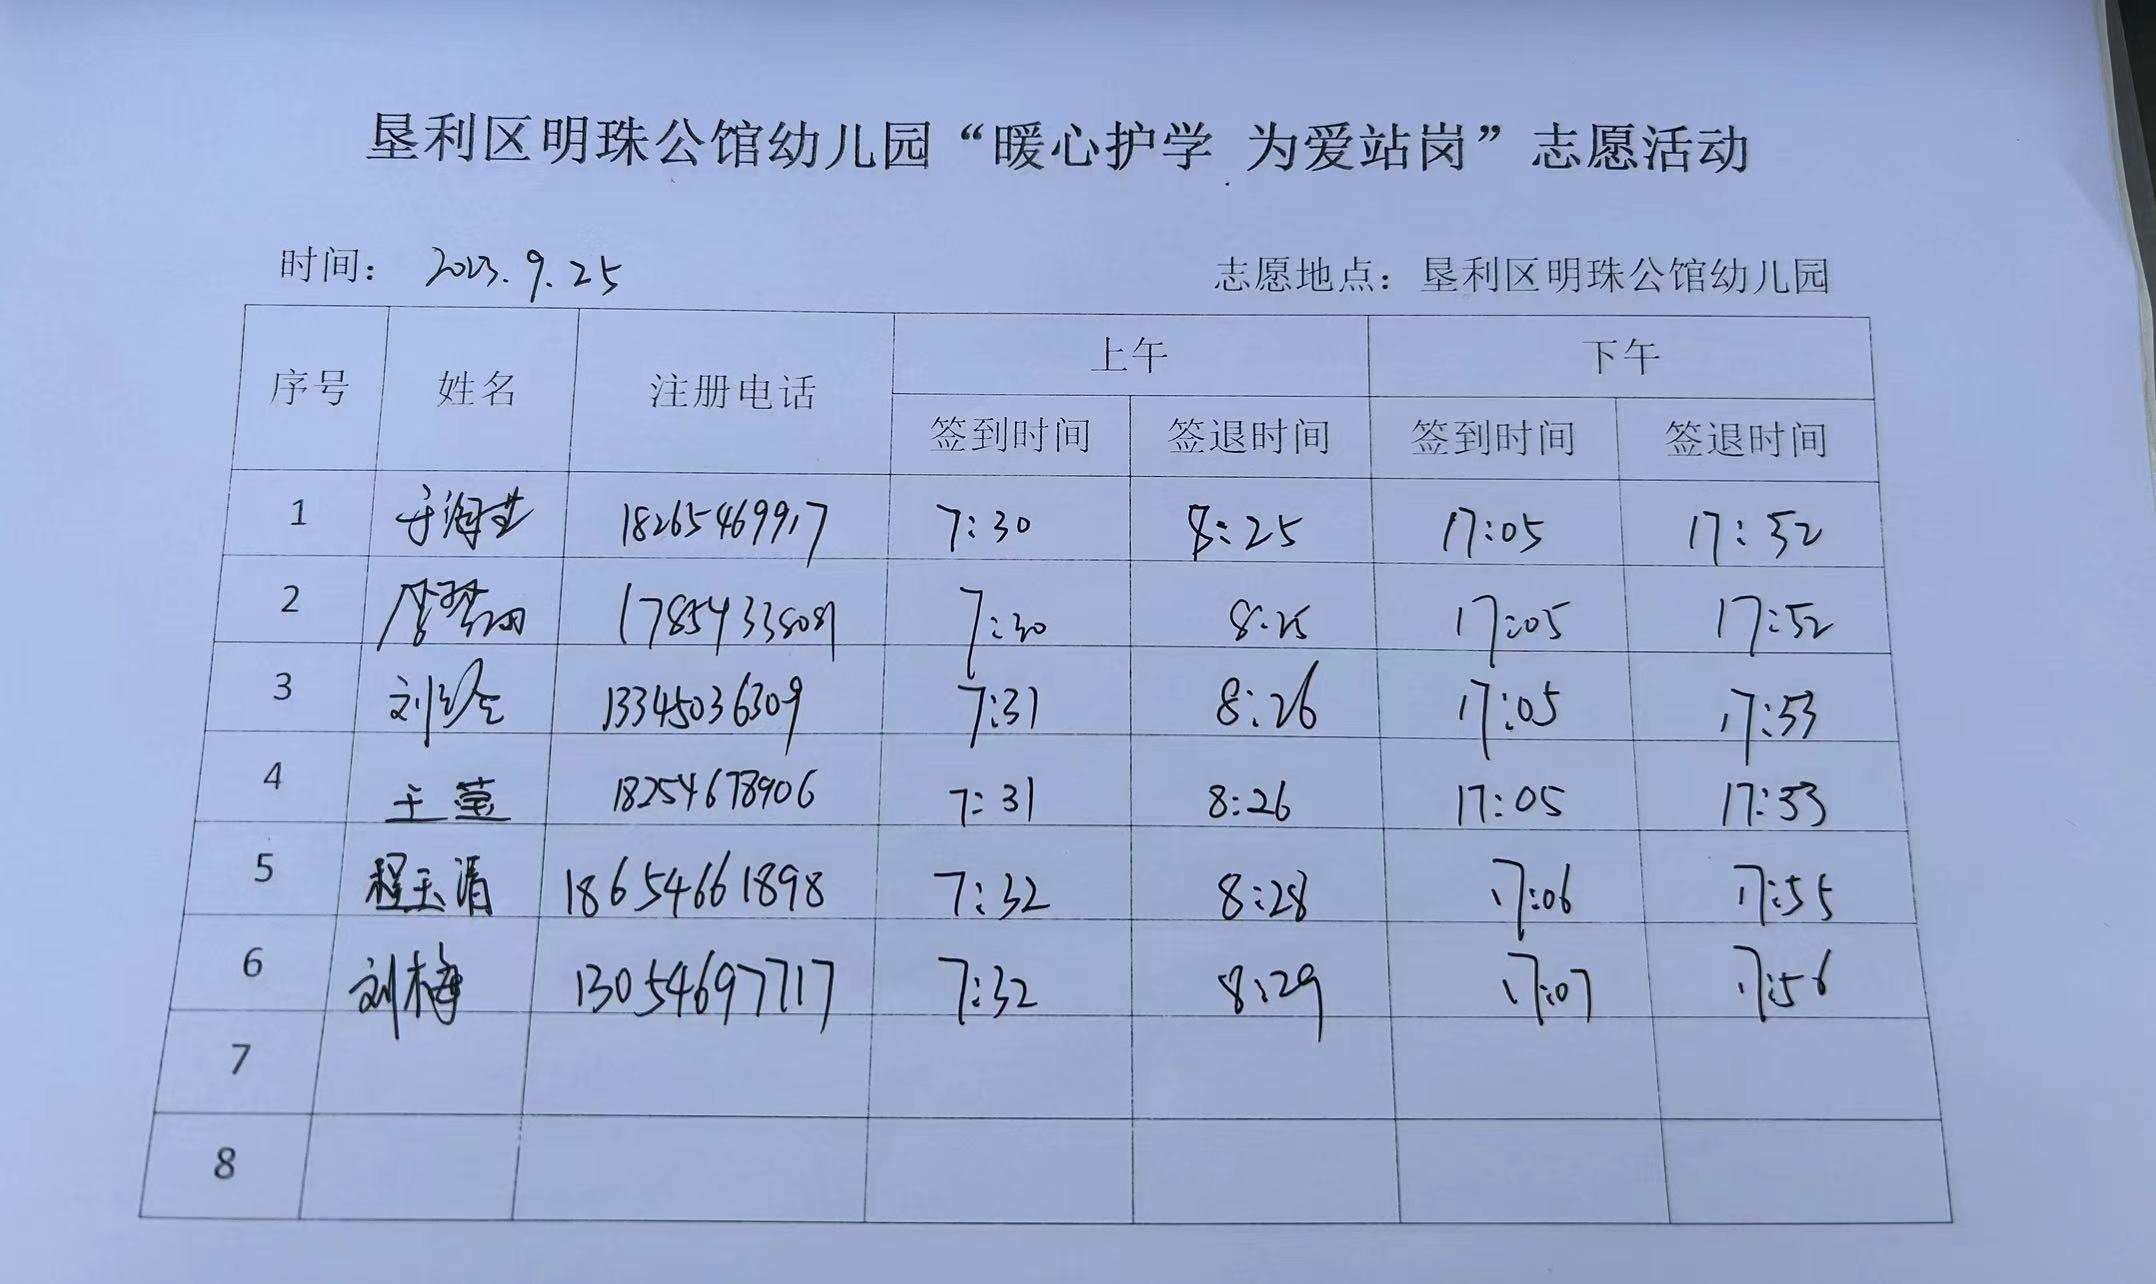 垦利区明珠公馆幼儿园“暖心护学 为爱站岗”志愿活动
时间： 2023.9.25 志愿地点：垦利区明珠公馆幼儿园
序号 姓名 注册电话 上午 下午
签到时间 签退时间 签到时间 签退时间
1 18265469917 7:30 8:25 17:05 17:52
2 17854338081 7:30 8:25 17:05 17:52
3 刘 13345036309 7:31 8:26 17:05 17:53
4 王莹 18254678906 7:31 8:26 17:05 17:53
5 程玉清 18654661898 7:32 8:28 17:06 17:55
6 刘梅 13054697717 7:32 8:29 17:07 17:56
7
8